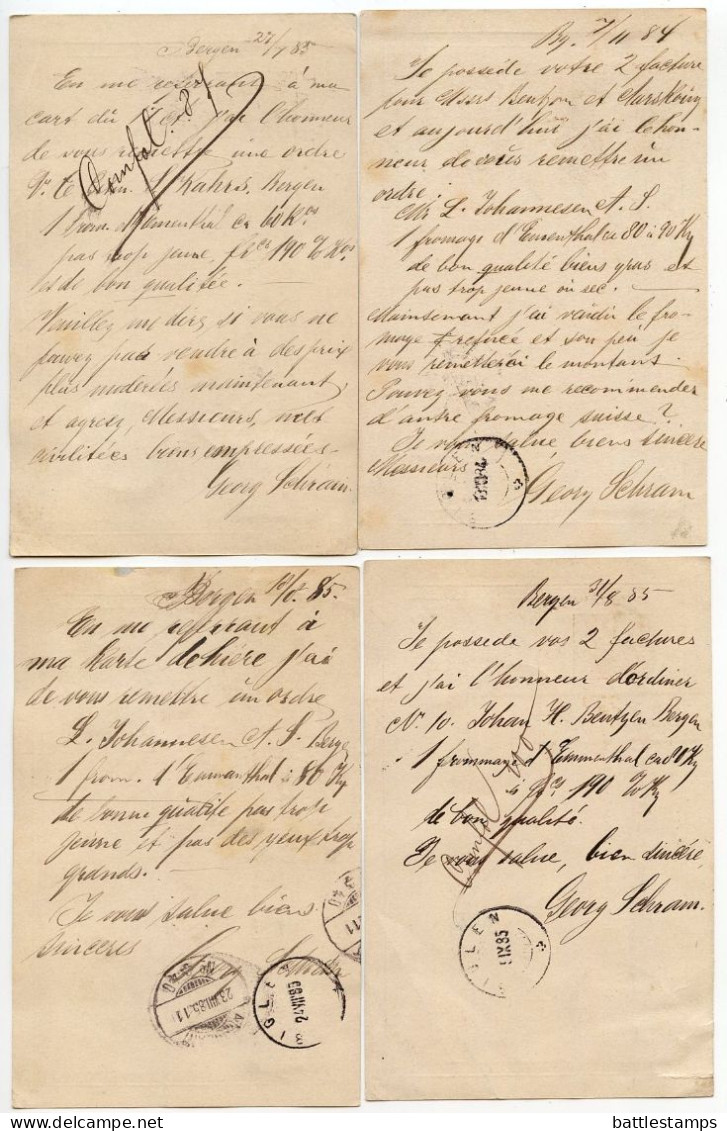 Bergen 27/1 85
En me referrant à ma
cart du 1 ct. j'ai l'honneur
de vous remettre une ordre
Kahrs. Bergen
1 from. d'Ementhal ca 60 Kos
pas trop jeune, fcs 190 % Kos
et de bon qualitée.—
Veuillez me dire, si vous ne
pouvez pas vendre à des prix
plus moderées maintenant,
et agreez, Messieurs, mes
civilitées biens empressées—
Georg Schram.
Bg. 7/11 84
Je possede votre 2 facture
pour Messrs Bentzon et
et aujourd'hui j'ai le hon-
neur de vous remettre un
ordre:
Mr L. Johannesen A. S.
1 fromage d'Ementhal ca 80 à 90 Kg
de bon qualité biens gras et
pas trop jeune ou sec. —
Maintenant j'ai vendu le fro-
mage refusée et son peu je
vous remetterai le montant.
Pouvez vous me recommender
d'autre fromage suisse?
Je vous salue biens sincere
Messieurs
Georg Schram
Bergen 85.
En me referrant à
ma Karte de hiere j'ai
de vous remettre un ordre
L. Johannesen A. S. Berge
1 from. d'Emmenthal à 80 Kg
de bonne qualité pas trop
jeune et pas des yeux trop
grands.—
Je vous salue biens
sinceres
23.VIII.85.11
SIGLEN
24 VIII 85
Bergen 31/8 85
Je possede vos 2 factures
et j'ai l'honneur d'ordiner
No 10. Johan H. Bentzen Bergen
1 frommage d'Emmenthal ca 80 Kg
à fcs 190 % Kg
de bon qualité.
Je vous salue, bien sincére,
Georg Schram.
IGLEN
IX 85
battlestamps